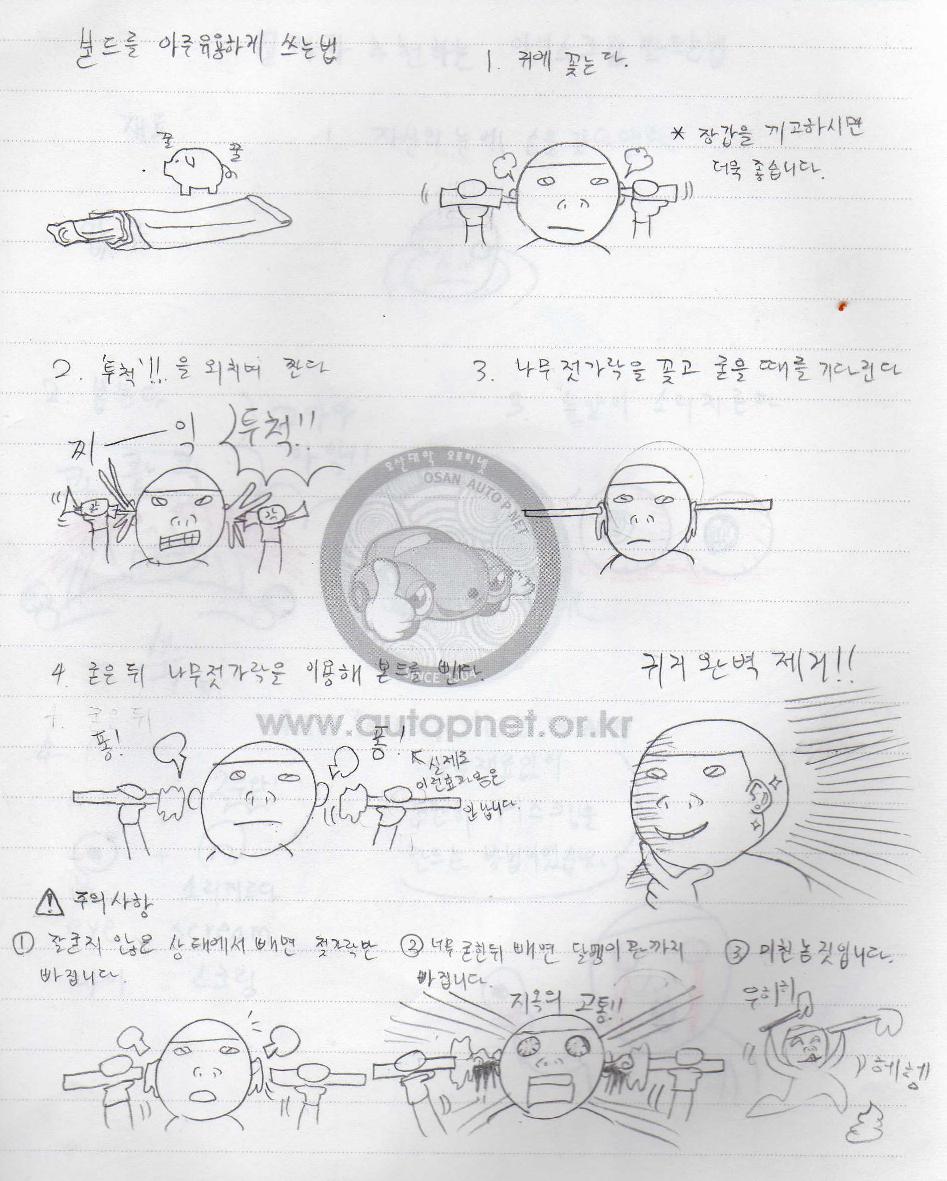 본드를 아주유용하게 쓰는법
1. 귀에 꽂는다.
꿀 꿀
* 장갑을 끼고하시면
더욱 좋습니다.
2. '투척'!!을 외치며 짠다
찌ㅡ익
투척!!
3. 나무젓가락을 꽂고 굳을때를 기다린다
오산대학 오토피넷
OSAN AUTO P NET
SINCE 2004
4. 굳은뒤 나무젓가락을 이용해 본드를 뺀다
www.autopnet.or.kr
퐁!
퐁!
실제로
이런효과음은
안납니다
귀지 완벽 제거!!
주의사항
① 잘굳지 않은 상태에서 빼면 젓가락만
빠집니다.
② 너무 굳힌뒤 빼면 달팽이관까지
빠집니다.
지옥의 고통!!
③ 미친놈 짓입니다.
우히히
헤헹